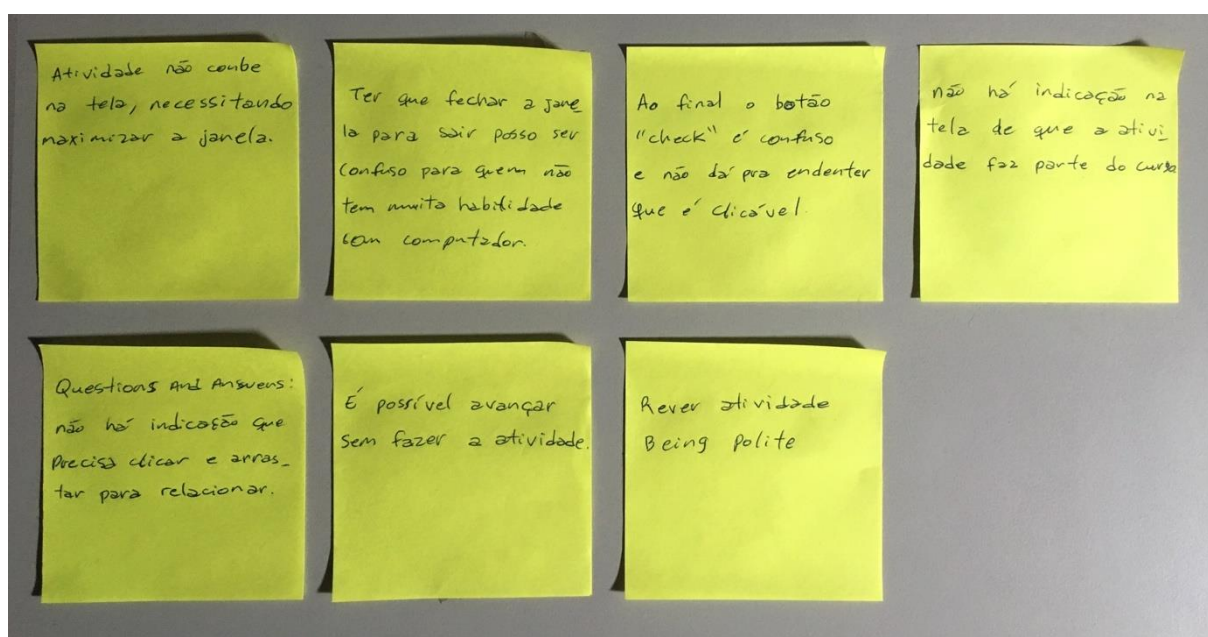 Atividade não coube
na tela, necessitando
maximizar a janela.
Ter que fechar a jane
la para sair posso ser
confuso para quem não
tem muita habilidade
com computador.
Ao final o botão
"check" é confuso
e não dá pra endenter
que é clicável
não há indicação na
tela de que a ativi_
dade faz parte do curso
Questions And Answers:
não há indicação que
precisa clicar e arras_
tar para relacionar.
É possível avançar
sem fazer a atividade.
Rever atividade
Being Polite